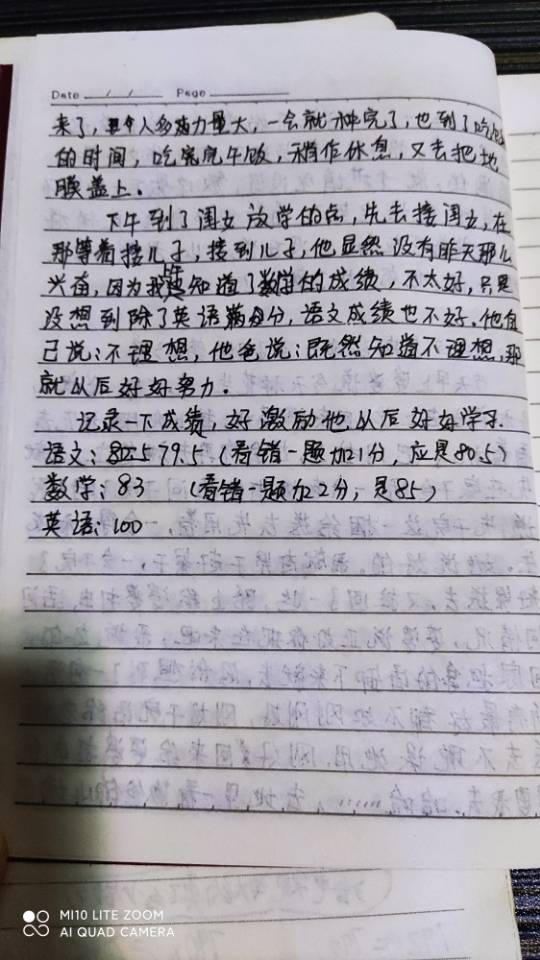 Date / / Page
来了，人多力量大，一会就种完了，也到了吃饭
的时间，吃完午饭，稍作休息，又去把地
膜盖上。
下午到了闺女放学的点，先去接闺女，在
那等着接儿子，接到儿子，他显然没有昨天那么
兴奋，因为我知道了数学的成绩，不太好，只是
没想到除了英语满分，语文成绩也不好。他自
己说：不理想，他爸说：既然知道不理想，那
就从后好好努力。
记录一下成绩，好激励他从后好好学习.
语文：79.5（看错一题加1分，应是80.5）
数学：83 （看错一题加2分，是85）
英语：100
MI10 LITE ZOOM
AI QUAD CAMERA